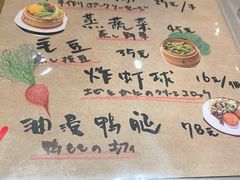 手作りポークソーセージ 29元/本
蒸蔬菜 45元
蒸し野菜
毛豆 35元
し枝豆
炸虾球 16元/1个
エビとかにのクリームコロッケ
油浸鴨腿 78元
鴨ももの コンフィ